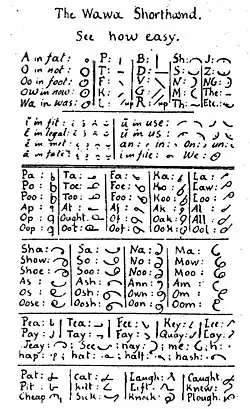 The Wawa Shorthand.
See how easy.
A in fat: P: B: Sh: J:
O in not: T: D: S: Z:
Oo in foot: F: V: N: NG:
Ow in now: K: G: M: Th:
Wa in was: L: /up R: /up Th: Etc.:
i in fit: u in use:
e in legal: u in us:
e in met: an: in: on: un:
a in fate: i in file: We:
Pa: Ta: Fa: Ka: La:
Po: Toe: Foe: Ko: Law:
Poo: Too: Foo: Koo: Loo:
Ap: At: Af: Ak: Al:
Op: Ought: Of: Oak: All:
Oop: Oot: Oof: Ook: Ool:
Sha: Sa: Na: Ma:
Show: So: No: Mow:
Shoe: Soo: Noo: Moo:
As: Ash: Ann: Am:
Os: Osh: Own: Om:
Oose: Oosh: Oon: Oom:
Pea: Tea: Fee: Key: Lee:
Pay: Tay: Fay: Quay: Lay:
Jeay: See: nay: me: h:
hap: hat: half: hash:
Pat: Cat: Laugh: Caught
Pit: kilt: Lift: Knew:
Cheap Sick: Knock: Plough.